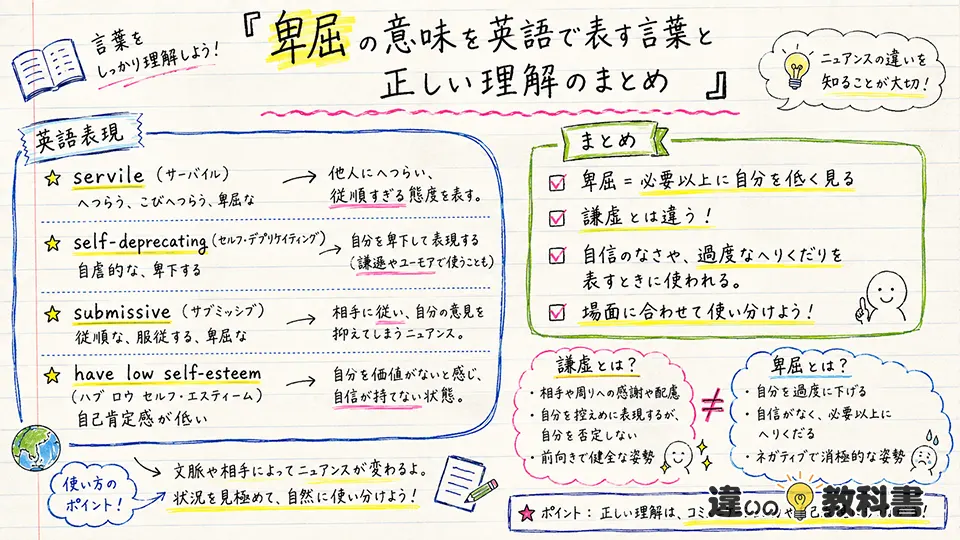 言葉を
しっかり理解しよう!
『卑屈の意味を英語で表す言葉と
正しい理解のまとめ』
ニュアンスの違いを
知ることが大切!
英語表現
☆ servile (サーバイル)
へつらう、こびへつらう、卑屈な
→ 他人にへつらい、
従順すぎる態度を表す。
☆ self-deprecating (セルフ・デプリケイティング)
自虐的な、卑下する
→ 自分を卑下して表現する
(謙遜やユーモアで使うことも)
☆ submissive (サブミッシブ)
従順な、服従する、卑屈な
→ 相手に従い、自分の意見を
抑えてしまうニュアンス。
☆ have low self-esteem
(ハブ ロウ セルフ・エスティーム)
自己肯定感が低い
→ 自分を価値がないと感じ、
自信が持てない状態。
使い方の
ポイント!
文脈や相手によってニュアンスが変わるよ。
状況を見極めて、自然に使い分けよう!
まとめ
☑ 卑屈 = 必要以上に自分を低く見る
☑ 謙虚とは違う!
☑ 自信のなさや、過度なへりくだりを
表すときに使われる。
☑ 場面に合わせて使い分けよう!
謙虚とは?
・相手や周りへの感謝や配慮
・自分を控えめに表現するが、
自分を否定しない
・前向きで健全な姿勢
≠
卑屈とは?
・自分を過度に下げる
・自信がなく、必要以上に
へりくだる
・ネガティブで消極的な姿勢
★ ポイント: 正しい理解は、コミ
違いの教科書